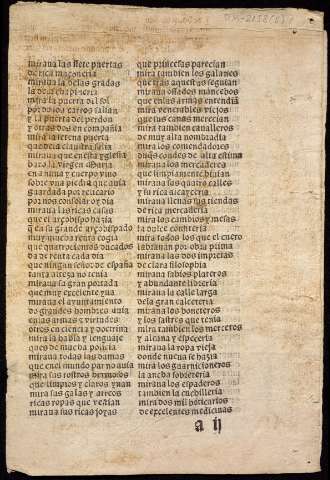 miraua las siete puertas
de rica maçoneria
miraua la delas gradas
mira la puerta del sol
por do los carros salian
y la puerta del perdon
y otras dos en compañia
mira la setena puerta
que dela claustra salia
miraua que en esta yglesia
en anima y cuerpo vino
guardada por relicario
por nos consolar oy dia
mirara las ricas casas
que el arçobispo hazia
q̃ ea su grande arçobispado
muy mucha renta cogia
que quatrocientos ducados
da de renta cada dia
que ningun señor de españa
tanta alteza no tenia
mirara su gran portada
que muy excelente
mirara el ayuntamiento
do grandes hombres auia
en las armas y virtudes
otros en ciencia y doctrina
mira la habla y lenguaje
mirara todas las damas
que enel mundo par no auia
mira sus rostros hermosos
que limpios y claros
mira sus galas y arreos
ricas ropas que vestian
mirara sus ricas joyas
que princesas parecian
mira tambien los galanes
que tras aquestas seguian
mirara osados mancebos
que enlas armas entendiã
mira venerables viejos
que sus canas merecian
mira tambien caualleros
de muy alta nombradia
mira los comendadores
duq̃s condes de alta estima
mirara los mercaderes
que limpiamente biuian
mirara las quatro calles
y su rica alcayceria
mirara llenas sus tiendas
de rica mercaderia
mira los cambios y mesas
la dulce confiteria
mira todos los que el cuero
labrauan por obra prima
mirara las dos imprentas
de clara filosophia
mirara sabios plateros
y abundante libreria
mirara la calle larga
dela gran calceteria
mirara los boneteros
y los sastres que tenia
mira tambien los merceros
y alcana y especeria
mirara la ropa vieja
donde nueua se hazia
mirara los guarnicioneros
la ancha
mirara los espaderos
tambien la cuchilleria
mira dos mil boticarios
de excelentes medicinas
a ij